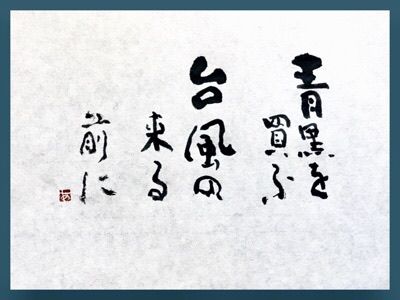 青黒を
買ふ
台風の
来る
前に